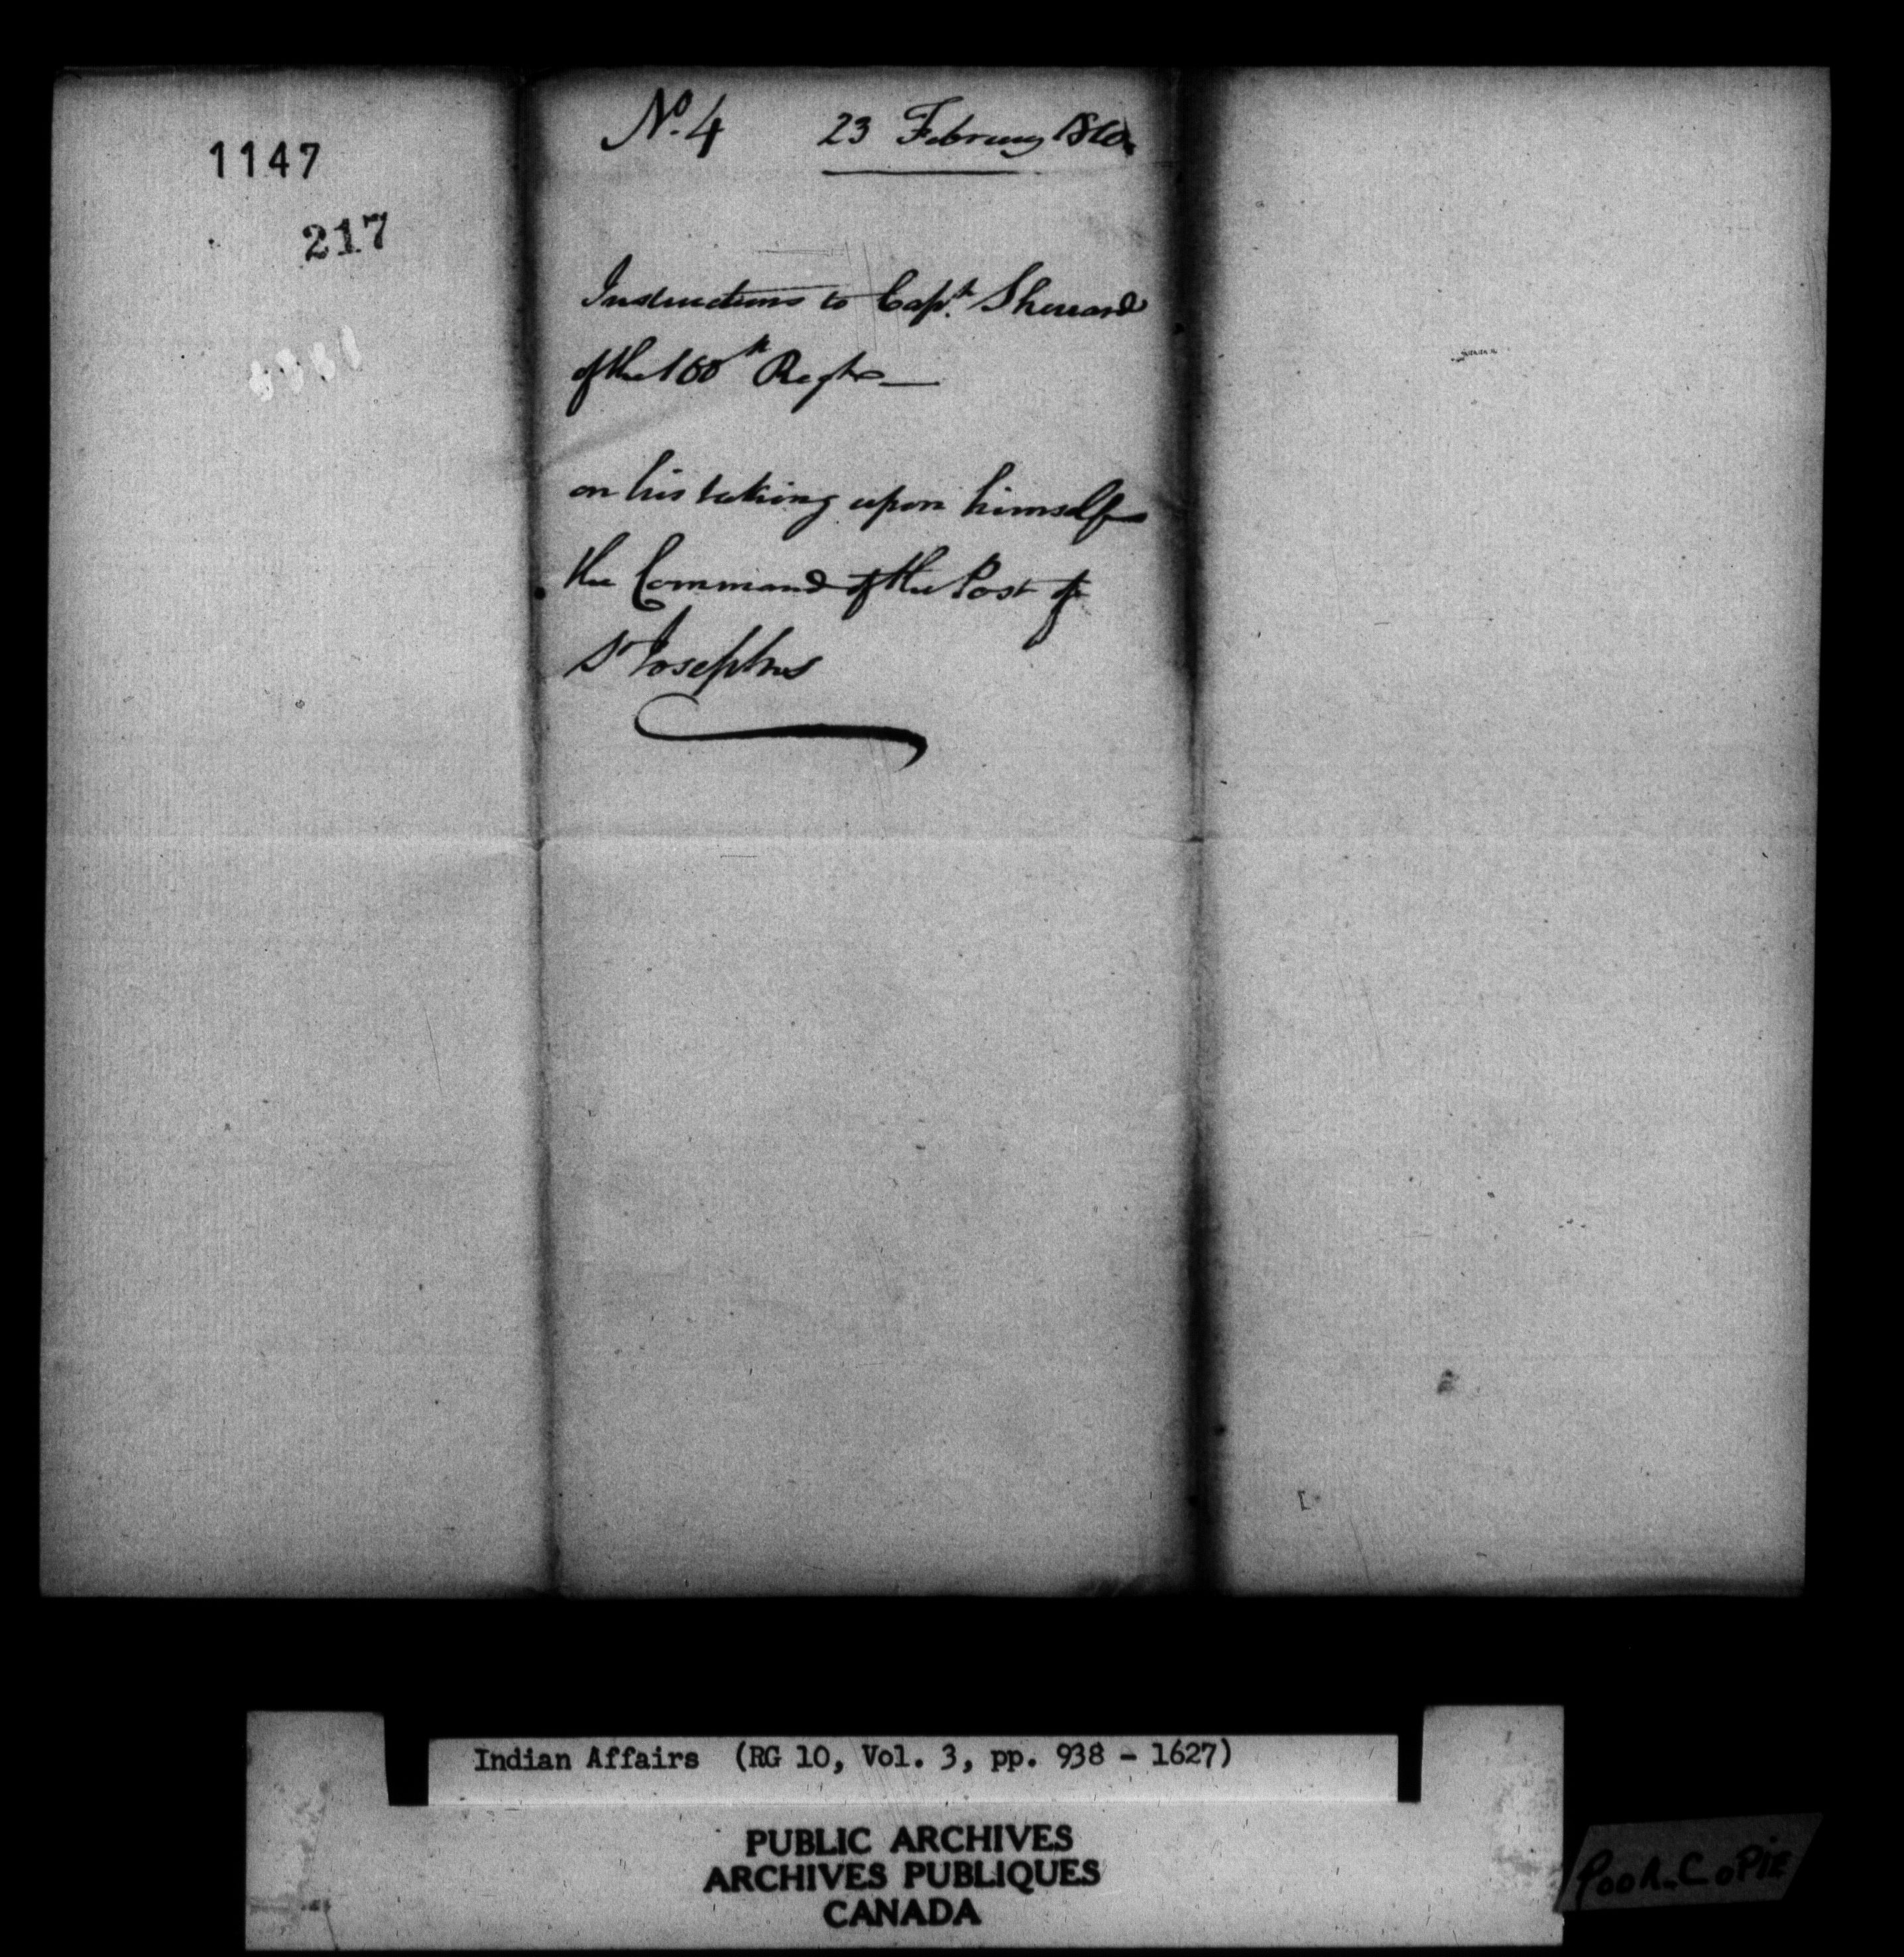 1147
217
No. 4 23 February 1810.
Instructions to Capt. Sherrard
of the 100th Regt.
on his taking upon himself
the Command of the Post of
St Josephs
Indian Affairs (RG 10, Vol. 3, pp. 938 - 1627)
PUBLIC ARCHIVES
ARCHIVES PUBLIQUES
CANADA
POOR COPIE